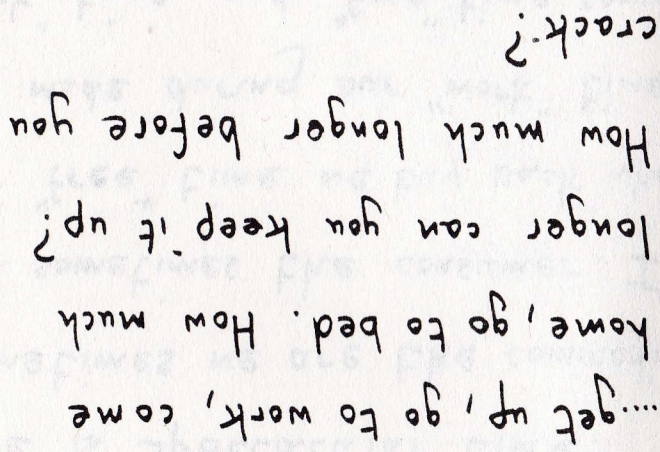 ....get up, go to work, come
home, go to bed. How much
longer can you keep it up?
How much longer before you
crack?